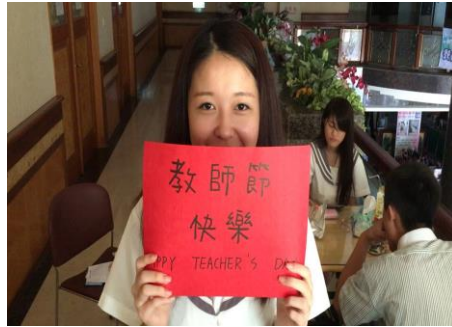 教師節
快樂
PPY TEACHER'S DA